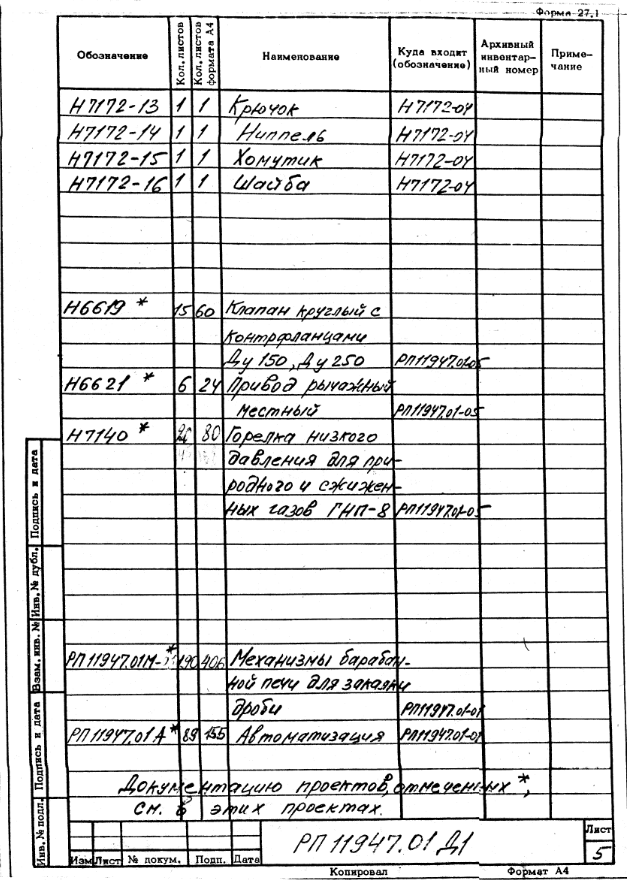 Форма 27.1
Обозначение Кол. листов Кол. листов формата А4 Наименование Куда входит (обозначение) Архивный инвентар-ный номер Приме-чание
Н7172-13 1 1 Крючок Н7172-04
Н7172-14 1 1 Ниппель Н7172-04
Н7172-15 1 1 Хомутик Н7172-04
Н7172-16 1 1 Шайба Н7172-04
Н6619 * 15 60 Клапан круглый с
контрфланцами
Ду 150, Ду 250 РП11947.01-05
Н6621 * 6 24 Привод рычажный
местный РП11947.01-05
Н7140 * 80 Горелка низкого
давления для при-
родного и сжижен-
ных газов ГНП-8 РП11947.01-05
РП11947.01М- * 190 406 Механизмы барабан-
ной печи для закалки
дроби РП11947.01-01
РП11947.01А * 89 155 Автоматизация РП11947.01-01
Документацию проектов, отмеченных *,
см. в этих проектах.
Инв. № подл. Подпись и дата Взам. инв. № Инв. № дубл. Подпись и дата
РП 11947.01 Д1
Лист
5
Изм Лист № докум. Подп. Дата
Копировал Формат А4